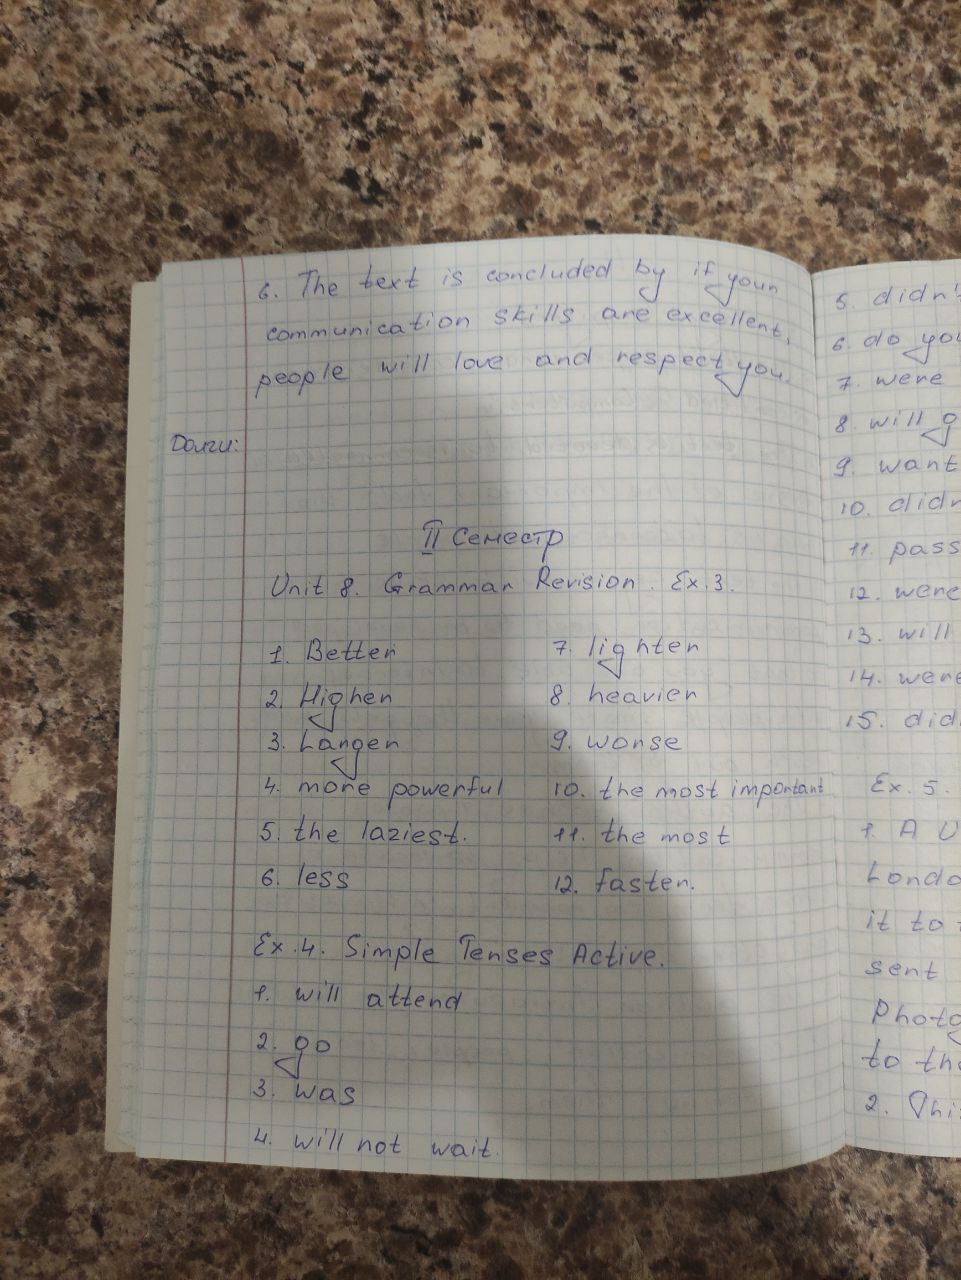 6. The text is concluded by if your
communication skills are excellent,
people will love and respect you.
Долги:
II Семестр
Unit 8. Grammar Revision. Ex.3.
1. Better
2. Higher
3. Larger
4. more powerful
5. the laziest.
6. less
7. lighter
8. heavier
9. worse
10. the most important
11. the most
12. faster.
Ex.4. Simple Tenses Active.
1. will attend
2. go
3. was
4. will not wait.
5. didn't
6. do you
7. were
8. will g
9. want
10. didn
11. pass
12. were
13. will
14. were
15. did
Ex. 5.
1. A U
Londo
it to
sent
Photo
to the
2. Thi